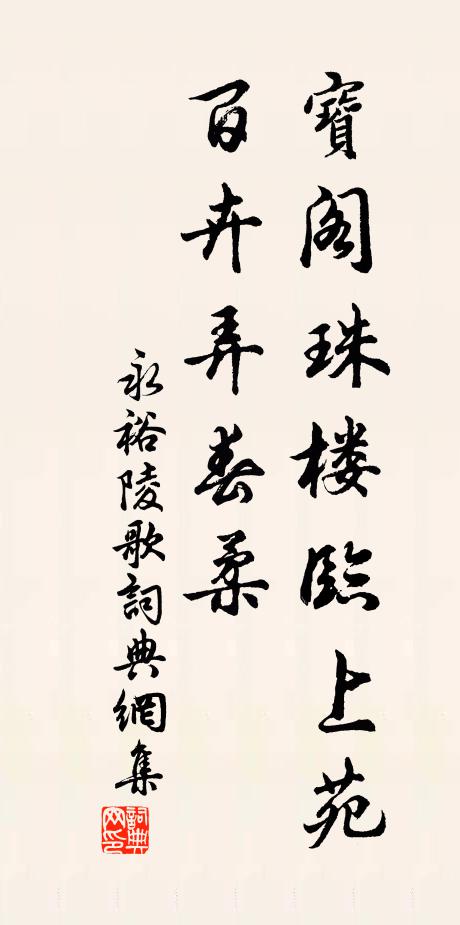 寶閣珠楼臨上苑
百卉弄春柔
永裕陵歌詞典網集
詞典網印